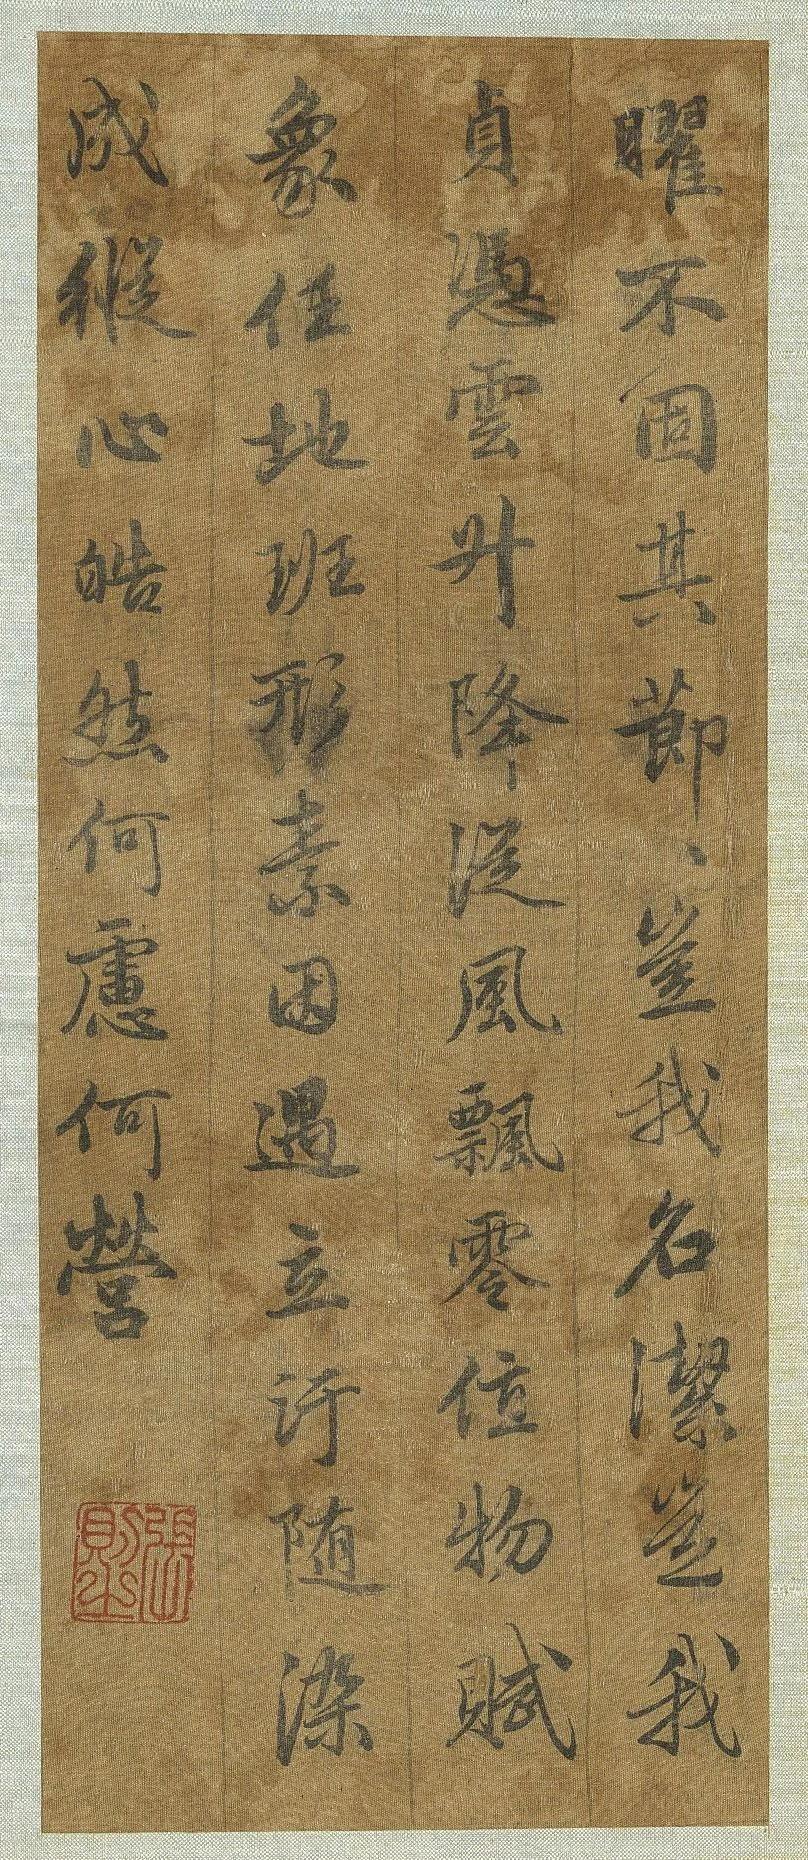 曜不固其節、豈我名潔豈我
貞慿雲升降從風飄零值物賦
象任地班形素因遇立汙随染
成縱心皓然何慮何營
張則之